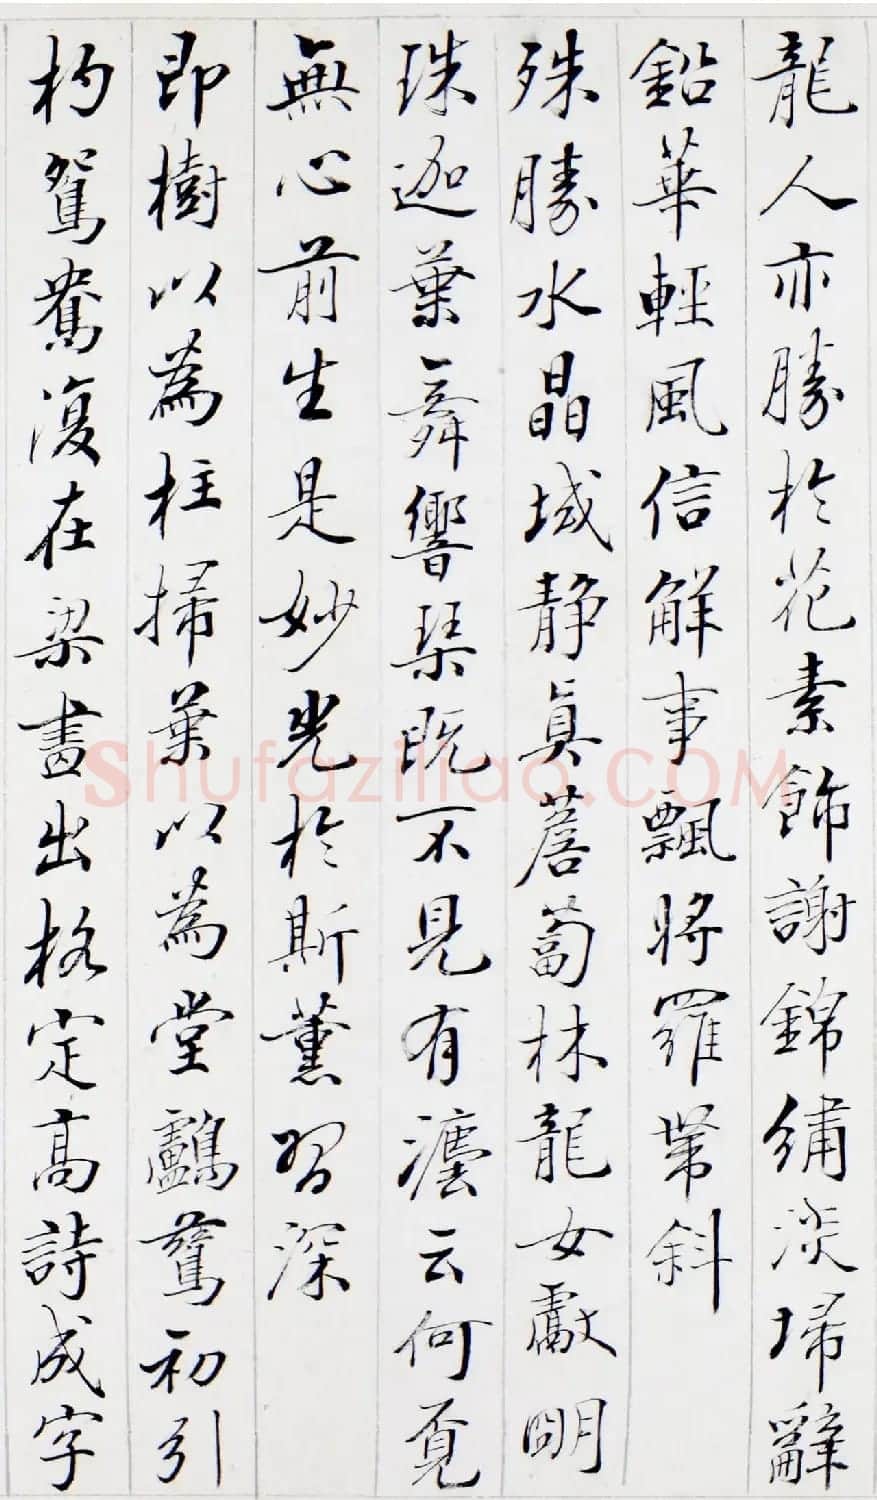 龍人亦勝於花素飾謝錦繡淡埽辭
鉛華輕風信解事飄將羅帶斜
殊勝水晶域静眞薝蔔林龍女獻明
珠迦葉舞響琹既不見有灋云何覓
無心前生是妙光於斯薰習深
即樹以為柱掃葉以為堂鸕鶿初引
杓鴛鴦復在梁畫出格定高詩成字
Shufaziliao.COM